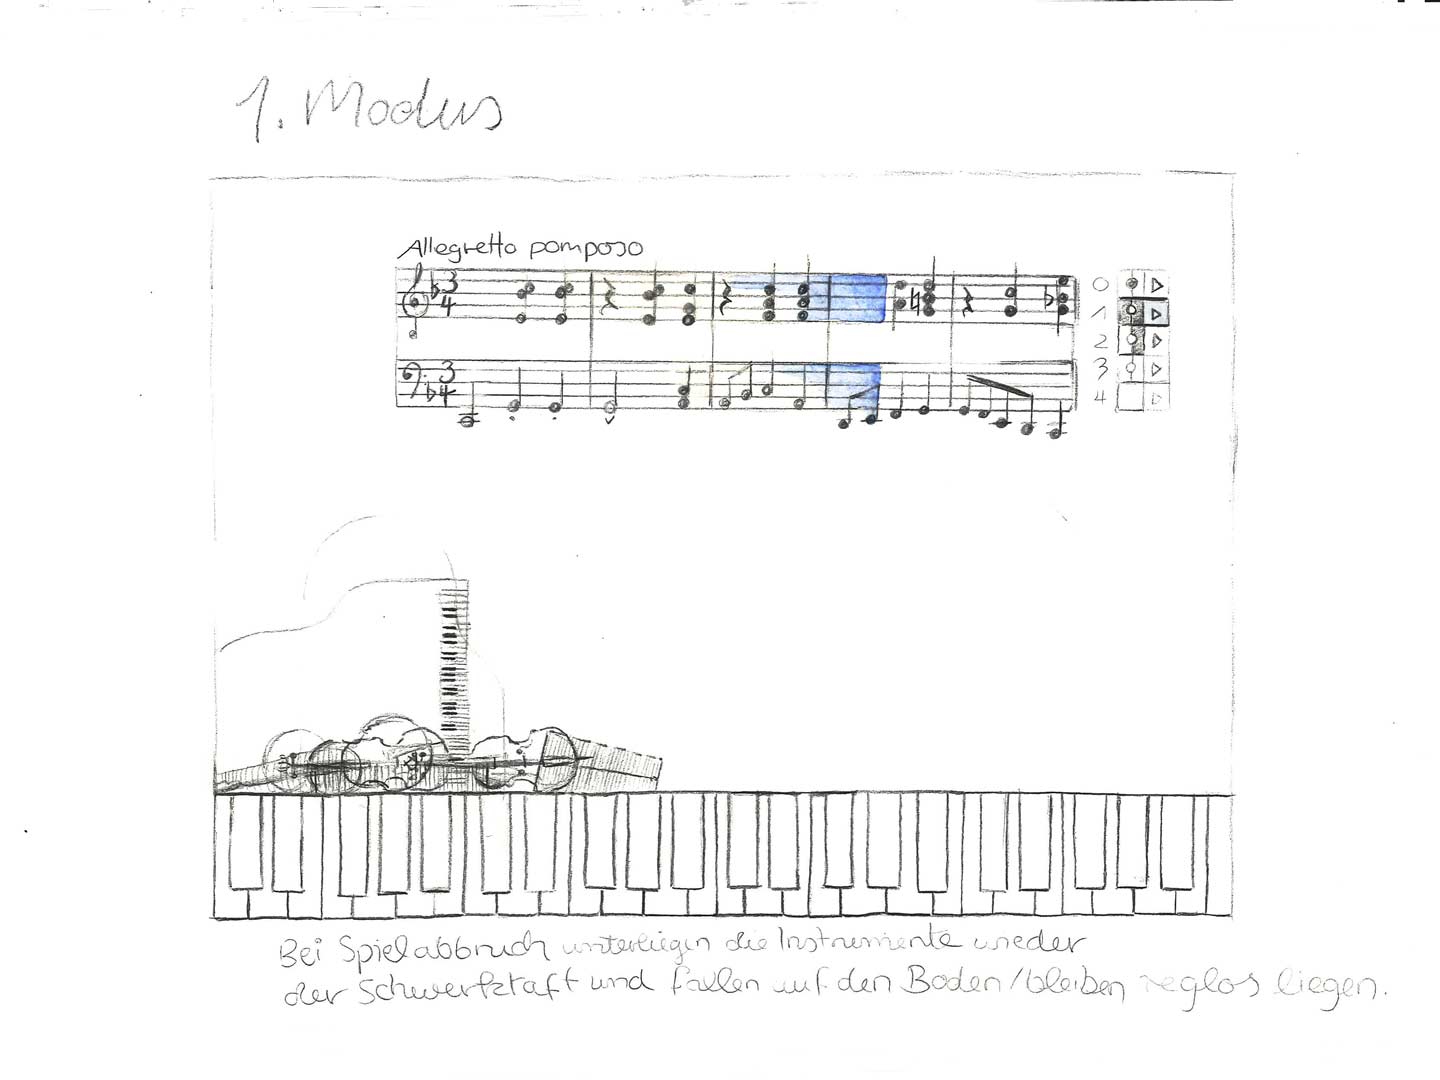 1. Modus
Allegretto pomposo
3
4
3
4
0
1
2
3
4
Bei Spielabbruch unterliegen die Instrumente wieder
der Schwerkraft und fallen auf den Boden/bleiben reglos liegen.